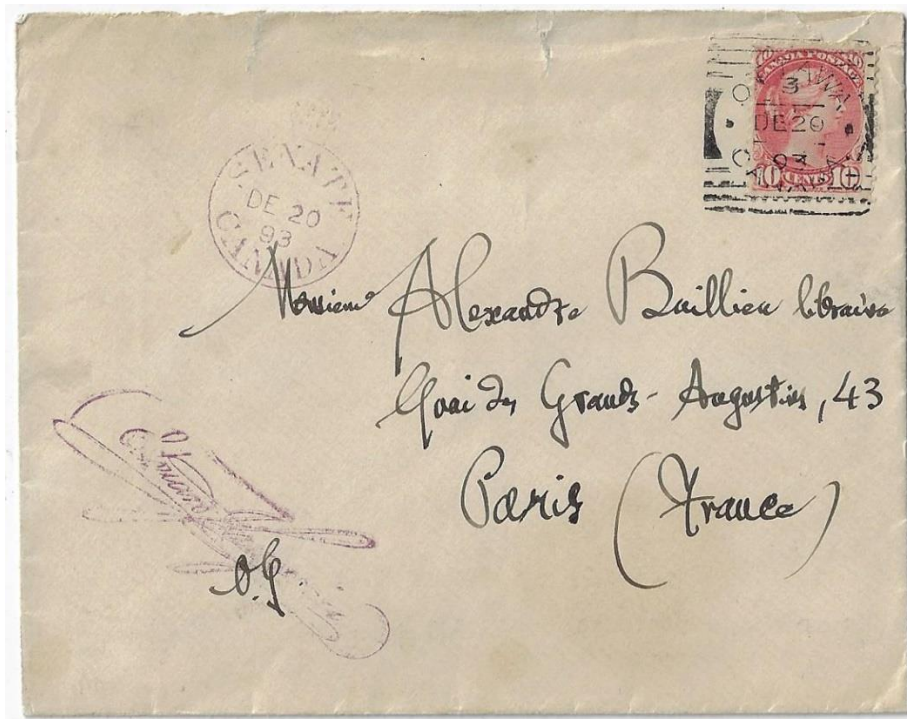 CANADA POSTAGE
OTTAWA
3
DE 20
93
CANADA
10 CENTS 10
SENATE
DE 20
93
CANADA
Monsieur Alexandre Baillieu libraire
Quai des Grands-Augustins, 43
Paris (France)